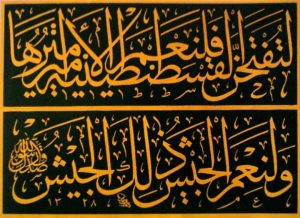 لتفتحن القسطنطينية فلنعم الأمير أميرها
ولنعم الجيش ذلك الجيش
١٣٢٨